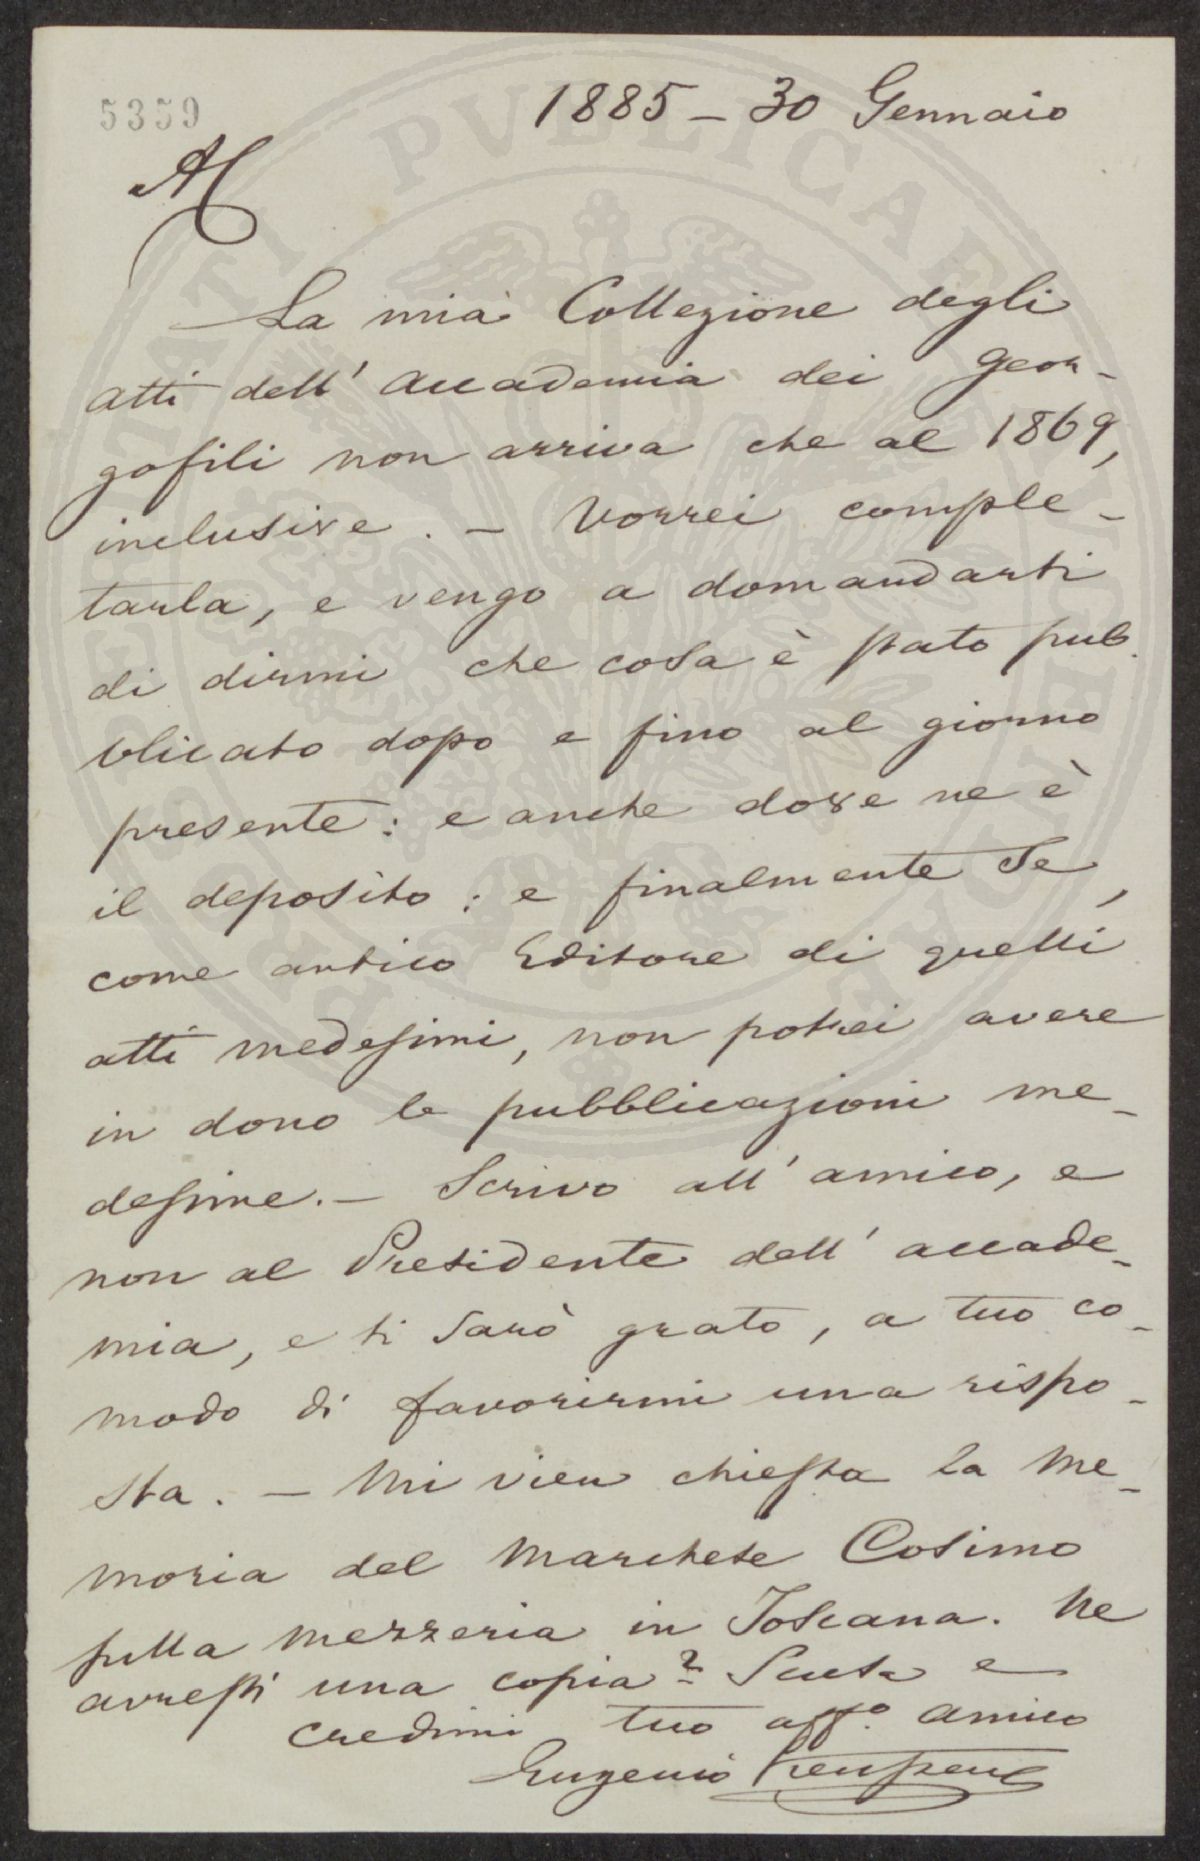 5359
1885 - 30 Gennaio
AC
La mia Collezione degli
atti dell' accademia dei Geor-
gofili non arriva che al 1869,
inclusive. - Vorrei comple-
tarla, e vengo a domandarti
di dirmi che cosa è stato pub-
blicato dopo e fino al giorno
presente: e anche dove ne è
il deposito: e finalmente se,
come antico Editore di quelli
atti medesimi, non potrei avere
in dono le pubblicazioni me-
desime. - Scrivo all' amico, e
non al Presidente dell' accade-
mia, e ti sarò grato, a tuo co-
modo di favorirmi una rispo-
sta. - Mi vien chiesta la Me-
moria del Marchese Cosimo
sulla Mezzeria in Toscana. Ne
avresti una copia? Scusa e
credimi tuo affo. amico
Eugenio